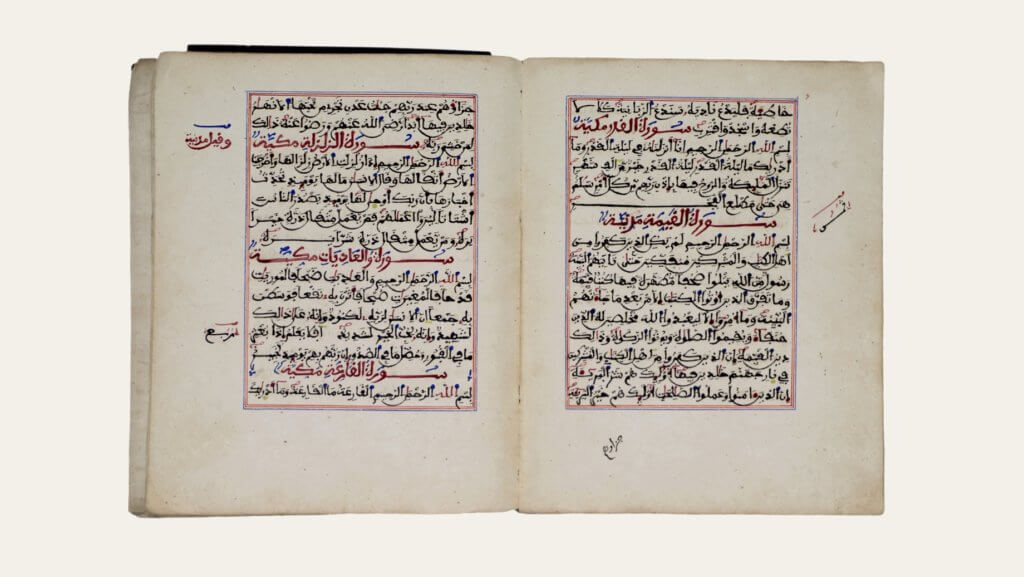 خاطئة فليدع ناديه سندع الزبانية كلا لا
تطعه واسجد واقترب سورة القدر مكية
بسم الله الرحمن الرحيم انا انزلنه في ليلة القدر وما
ادريك ما ليلة القدر ليلة القدر خير من الف شهر
تنزل المليكة والروح فيها باذن ربهم من كل امر سلم
هي حتى مطلع الفجر
سورة القيمة مدنية
بسم الله الرحمن الرحيم لم يكن الذين كفروا من
اهل الكتب والمشركين منفكين حتى تاتيهم البينة
رسول من الله يتلوا صحفا مطهرة فيها كتب قيمة
وما تفرق الذين اوتوا الكتب الا من بعد ما جاءتهم
البينة وما امروا الا ليعبدوا الله مخلصين له الدين
حنفاء ويقيموا الصلوة ويوتوا الزكوة وذلك
دين القيمة ان الذين كفروا من اهل الكتب والمشركين
في نار جهنم خلدين فيها اوليك هم شر البرية
ان الذين امنوا وعملوا الصلحت اوليك هم خير البرية
جزاوهم
جزاوهم عند ربهم جنت عدن تجري من تحتها الانهر
خلدين فيها ابدا رضي الله عنهم ورضوا عنه ذلك
لمن خشي ربه سورة الزلزلة مكية
وقيل مدنية
بسم الله الرحمن الرحيم اذا زلزلت الارض زلزالها واخرجت
الارض اثقالها وقال الانسن ما لها يوميذ تحدث
اخبارها بان ربك اوحى لها يوميذ يصدر الناس
اشتاتا ليروا اعملهم فمن يعمل مثقال ذرة خيرا
يره ومن يعمل مثقال ذرة شرا يره
سورة والعاديات مكية
بسم الله الرحمن الرحيم والعديت ضبحا فالموريت
قدحا فالمغيرت صبحا فاثرن به نقعا فوسطن
به جمعا ان الانسن لربه لكنود وانه على ذلك
لشهيد وانه لحب الخير لشديد افلا يعلم اذا بعثر
ما في القبور وحصل ما في الصدور ان ربهم بهم يوميذ لخبير
سورة القارعة مكية
بسم الله الرحمن الرحيم القارعة ما القارعة وما ادريك